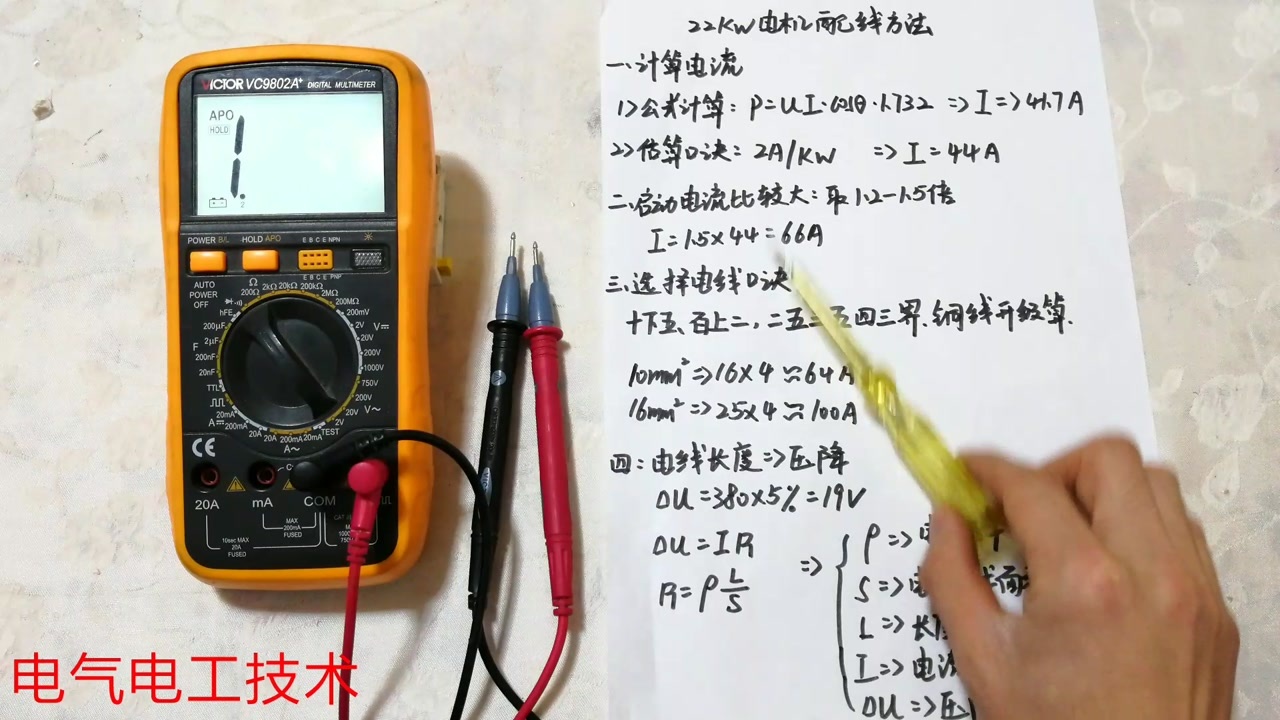 22KW电机配线方法
一、计算电流
1>公式计算: P=UI·cosθ·1.732 => I=>41.7A
2>估算口决: 2A/KW => I=44A
二、启动电流比较大:取1.2-1.5倍
I=1.5×44=66A
三、选择电线口决
十下五、百上二,二五三五四三界、铜线升级算.
10mm²=>16×4≈64A
16mm²=>25×4≈100A
四:电线长度=>压降
ΔU=380×5%=19V
ΔU=IR
R=ρL/S
=>
ρ=>
S=>
L=>长
I=>电流
ΔU=>压
VICTOR VC9802A+ DIGITAL MULTIMETER
APO
HOLD
1.
2
POWER B/L HOLD APO E B C E NPN
E B C E PNP
AUTO POWER OFF
Ω
200Ω 2kΩ 20kΩ 200kΩ 2MΩ
200MΩ
hFE 200mV
200μF 2V V
F 2μF 20V
200nF 200V
20nF 1000V
TTL 750V
200V V~
A 20mA 2V
20A 20A 200mA 20mA TEST
A~
CE
20A mA COM
MAX 200mA FUSED
10sec MAX 20A FUSED
电气电工技术